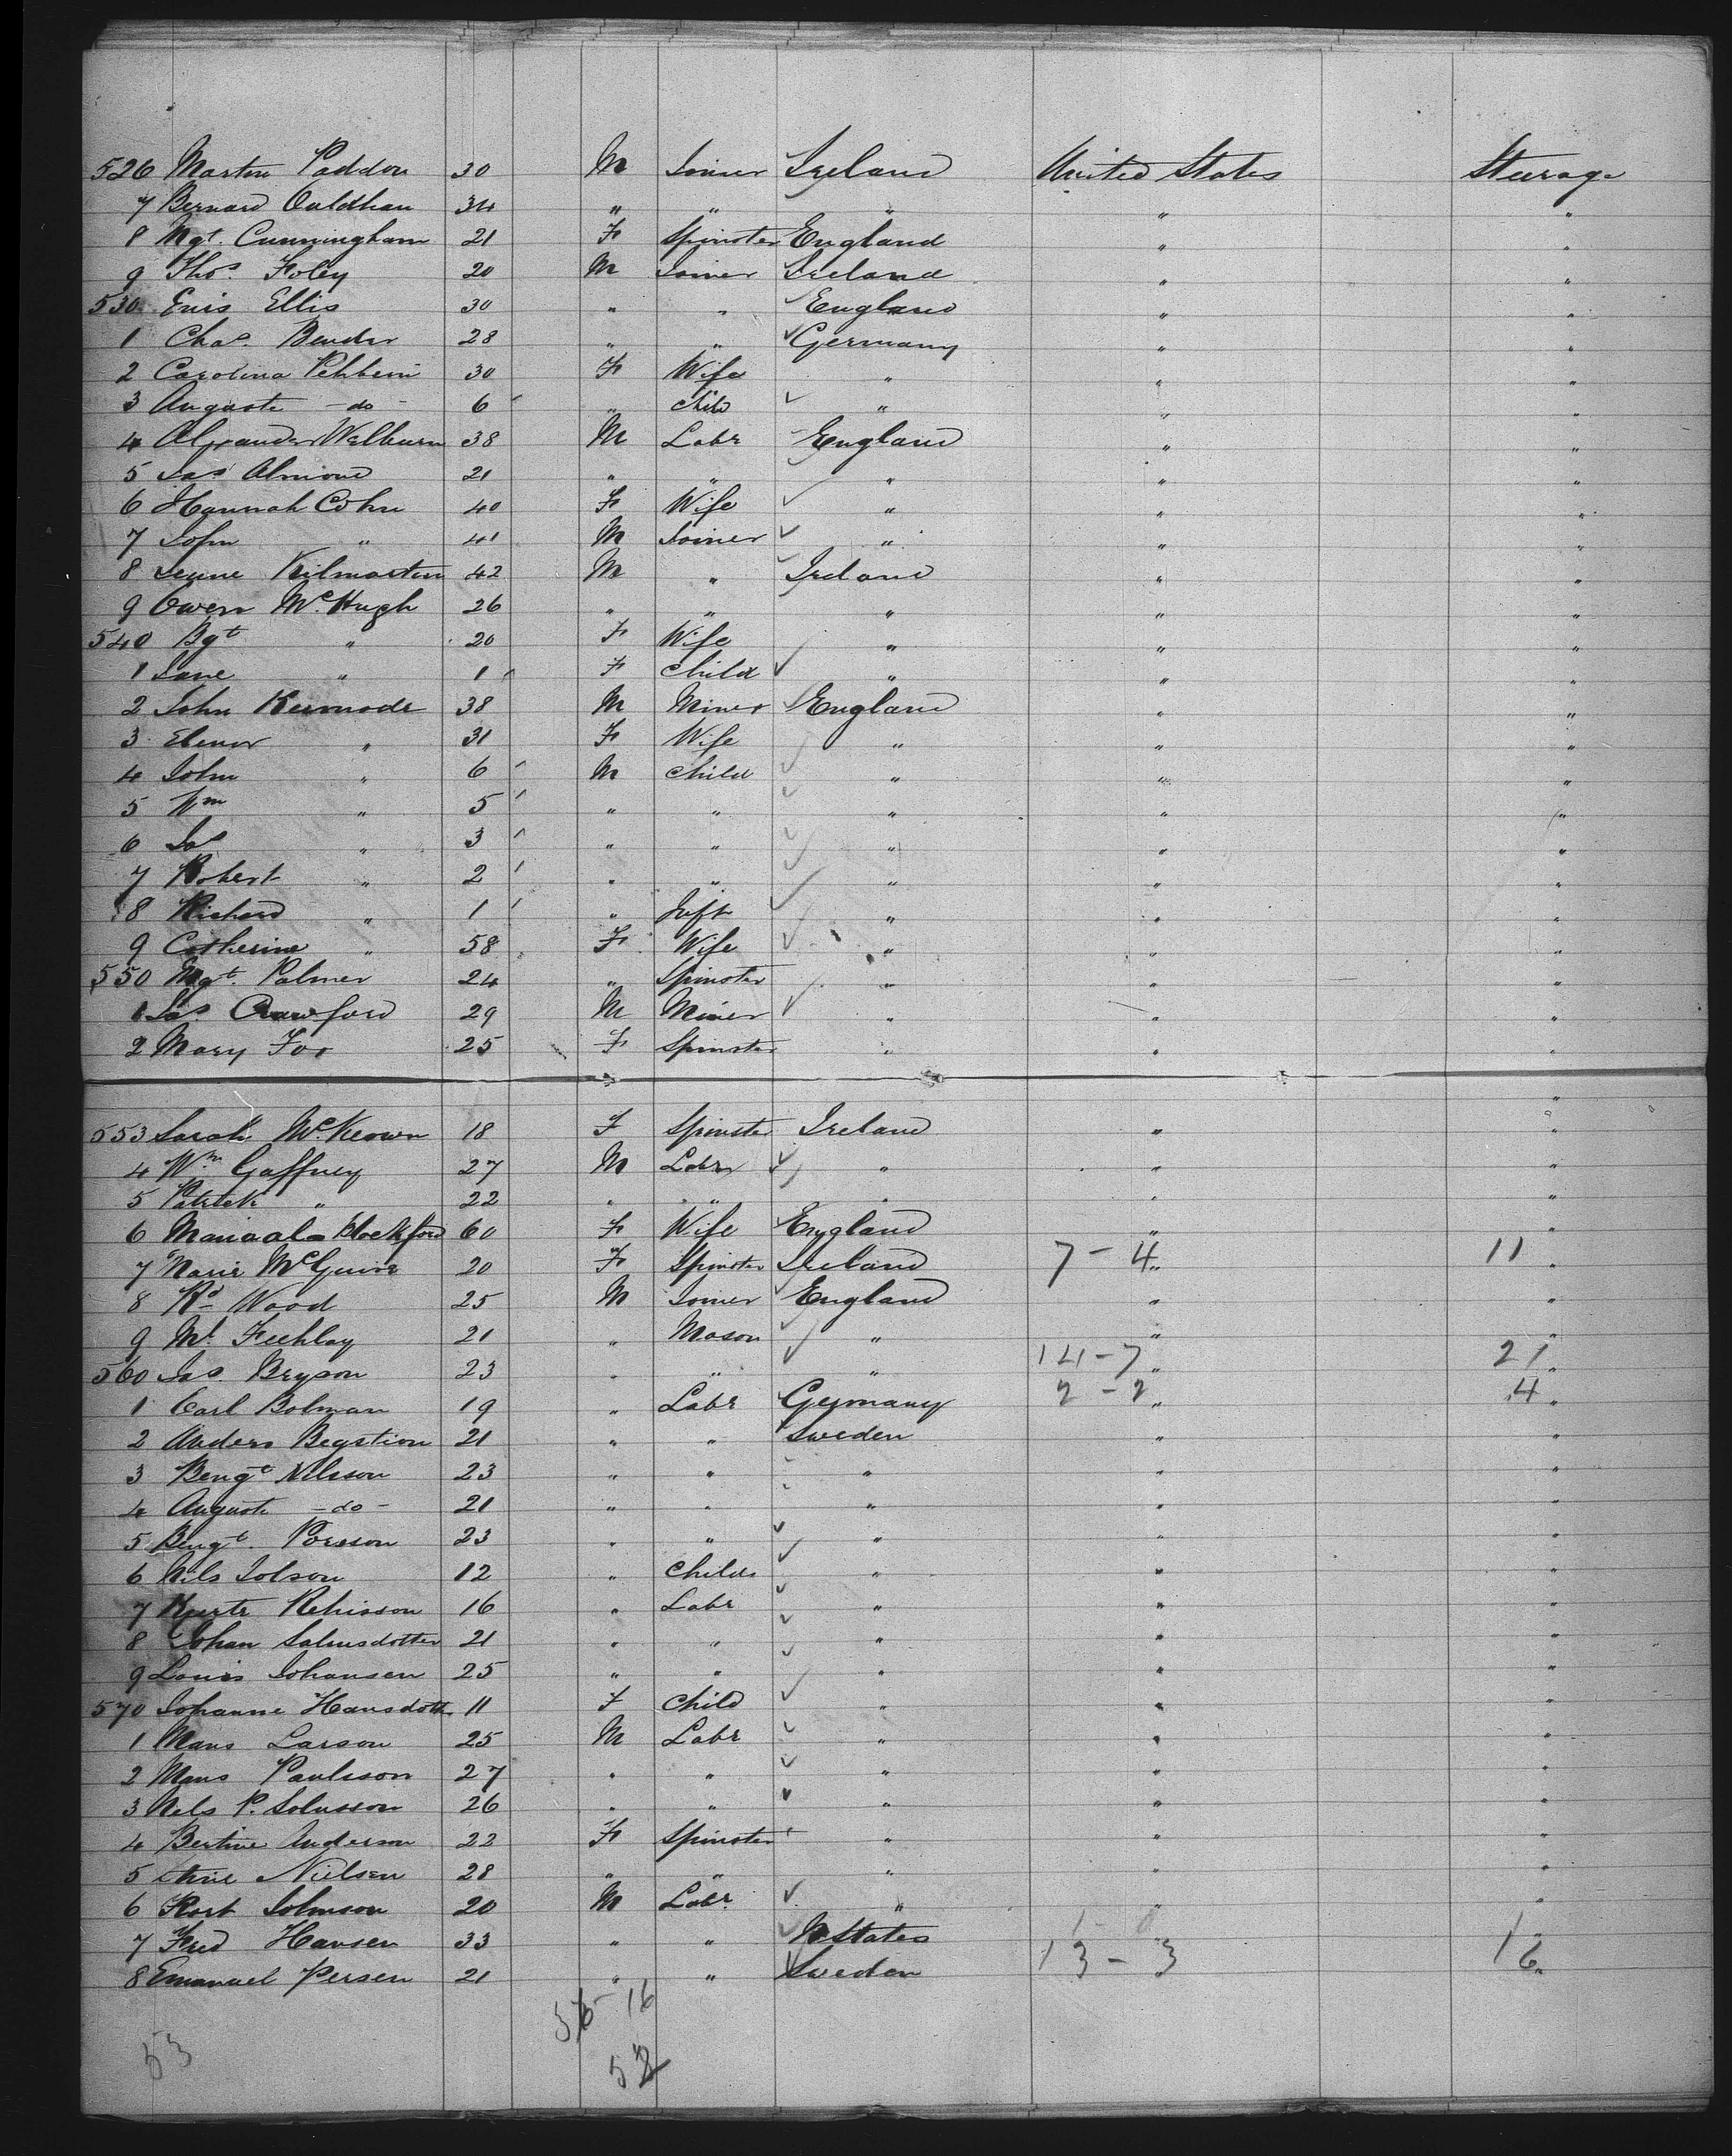 526 Martin Paddon 30 M Joiner Ireland United States Steerage
7 Bernard Ouldhan 34 " " " " "
8 Mgt. Cunningham 21 F Spinster England " "
9 Thos. Foley 20 M Joiner Ireland " "
530 Enis Ellis 30 " " England " "
1 Chas. Bender 28 " " Germany " "
2 Carolina Rehbein 30 F Wife " " "
3 Auguste -do- 6 " Child " " "
4 Alexander Welburn 38 M Labr England " "
5 Jas Almond 21 " " " " "
6 Hannah Cohn 40 F Wife " " "
7 John " 41 M Joiner " " "
8 Kilmartin 42 M " Ireland " "
9 Owen McHugh 26 " " " " "
540 Bgt " 20 F Wife " " "
1 Jane " 1 F Child " " "
2 John Kermode 38 M Miner England " "
3 Elenor " 31 F Wife " " "
4 John " 6 M Child " " "
5 Wm " 5 " " " " "
6 Jas " 3 " " " " "
7 Robert " 2 " " " " "
8 Richard " 1 " Inft " " "
9 Catherine " 58 F Wife " " "
550 Mgt. Palmer 24 " Spinster " " "
1 Jas. Crawford 29 M Miner " " "
2 Mary Fox 25 F Spinster " " "
553 Sarah McKeown 18 F Spinster Ireland " "
4 Wm Gaffney 27 M Labr " " "
5 Patrick " 22 " " " " "
6 Blockford 60 F Wife England " "
7 Marie McGuire 20 F Spinster Ireland 7 - 4 " 11 "
8 Rd Wood 25 M Joiner England " "
9 Mt. Feehlay 21 " Mason " " "
560 Jas. Bryson 23 " " " 14 - 7 " 21 "
1 Carl Bolman 19 " Labr Germany 2 - 2 " 4 "
2 Anders Begstion 21 " " Sweden " "
3 Bengt Nilsson 23 " " " " "
4 Auguste -do- 21 " " " " "
5 Bengt. Poesson 23 " " " " "
6 Nils Jolson 12 " Child " " "
7 Rehisson 16 " Labr " " "
8 Johan Salmsdotter 21 " " " " "
9 Louis Johansen 25 " " " " "
570 Johanne Hansdott 11 F Child " " "
1 Mans Larson 25 M Labr " " "
2 Mans Paulsson 27 " " " " "
3 Nels P. Johnsson 26 " " " " "
4 Bertine Anderson 22 F Spinster " " "
5 Nielsen 28 " " " " "
6 Johnson 20 M Labr. " " "
7 Fred Hansen 33 " " U States "
8 Emanuel Persen 21 " " Sweden 13 - 3 " 16 "
36 - 16
53
52